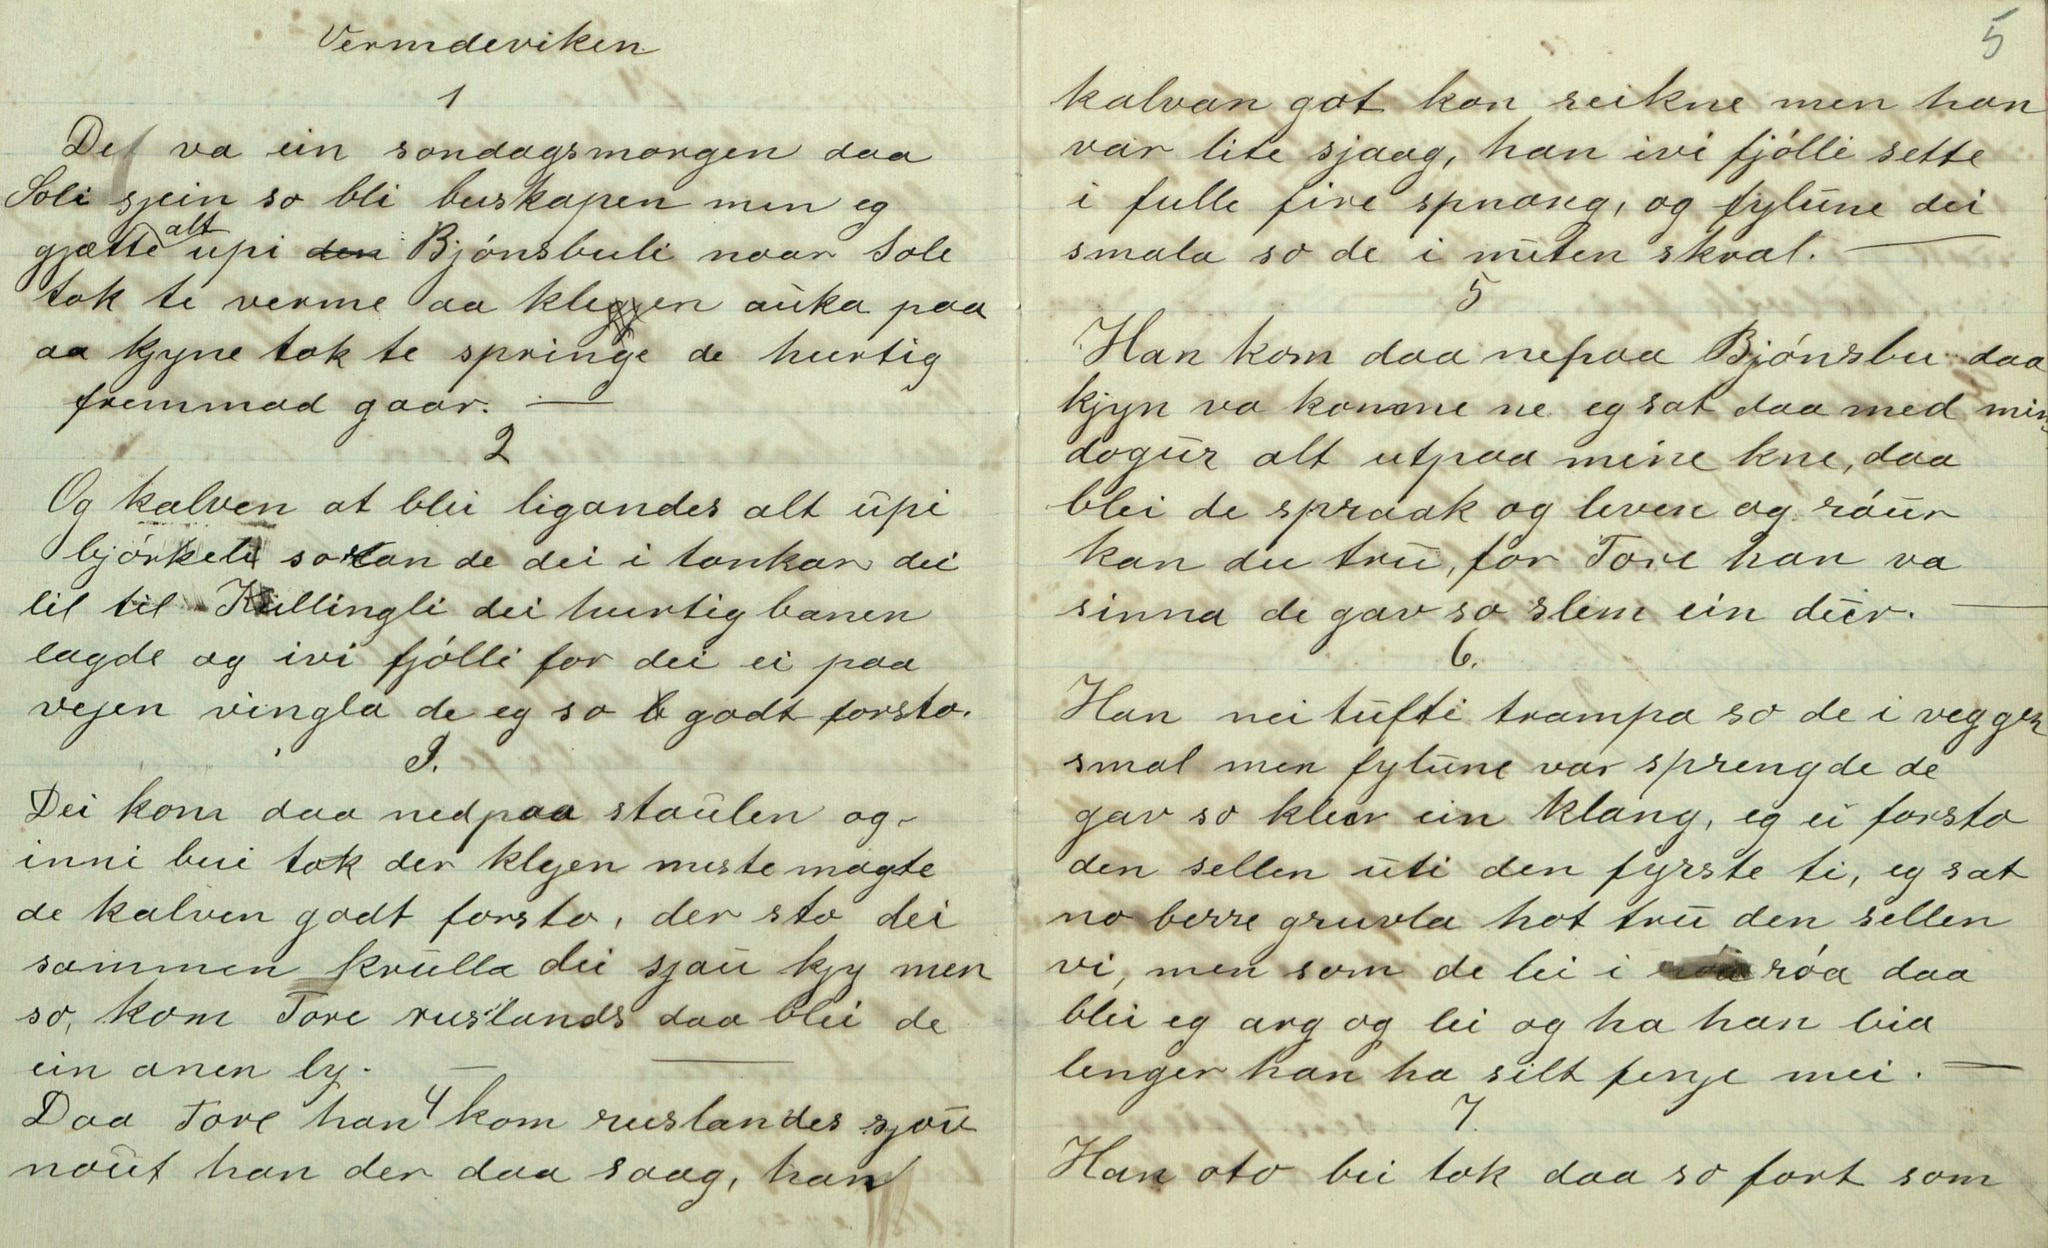 Vermdeviken
1
Det va ein sondagsmorgen daa
Soli sjein so bli buskapen men eg
gjætte alt upi den Bjónsbuli naar Sole
tok te verme aa kleggen auka paa
aa kjyne tok te springe de hurtig
fremmad gaar. —
2
Og kalven at blei ligandes alt upi
bjórkeli so stan de dei i tankar dei
lil til Killingli dei hurtig banen
lagde og ivi fjólli for dei ei paa
vejen vingla de eg so godt forsto.
3.
Dei kom daa nedpaa staulen og
inni bui tok der klejen miste magte
de kalven godt forsto, der sto dei
sammen krulla dei sjau kjy men
so, kom Tore ruslands daa blei de
ein anen ly. —
4
Daa Tore han kom ruslandes sjau
naut han der daa saag, han
5
kalvan got kan reikne men han
var lite sjaag, han ivi fjólli sette
i fulle fire spnang, og fylune dei
smala so de i nuten skral. —
5
Han kom daa nepaa Bjónsbu daa
kjyn va komme ne eg sat daa med min
dogur alt utpaa mine kne, daa
blei de spraak og leven og róur
kan du tru, for Tore han va
sinna de gav so slem ein dur. —
6.
Han nei tufti trampa so de i veggen
smal men fylune var sprengde de
gav so kleir ein klang, eg ei forsto
den sellen uti den fyrste ti, eg sat
no berre gruvla hot tru den sellen
vi, men som de lei i róa daa
blei eg arg og lei og ha han bia
lenger han ha silt fenje mei. —
7.
Han oto bui tok daa so fort som